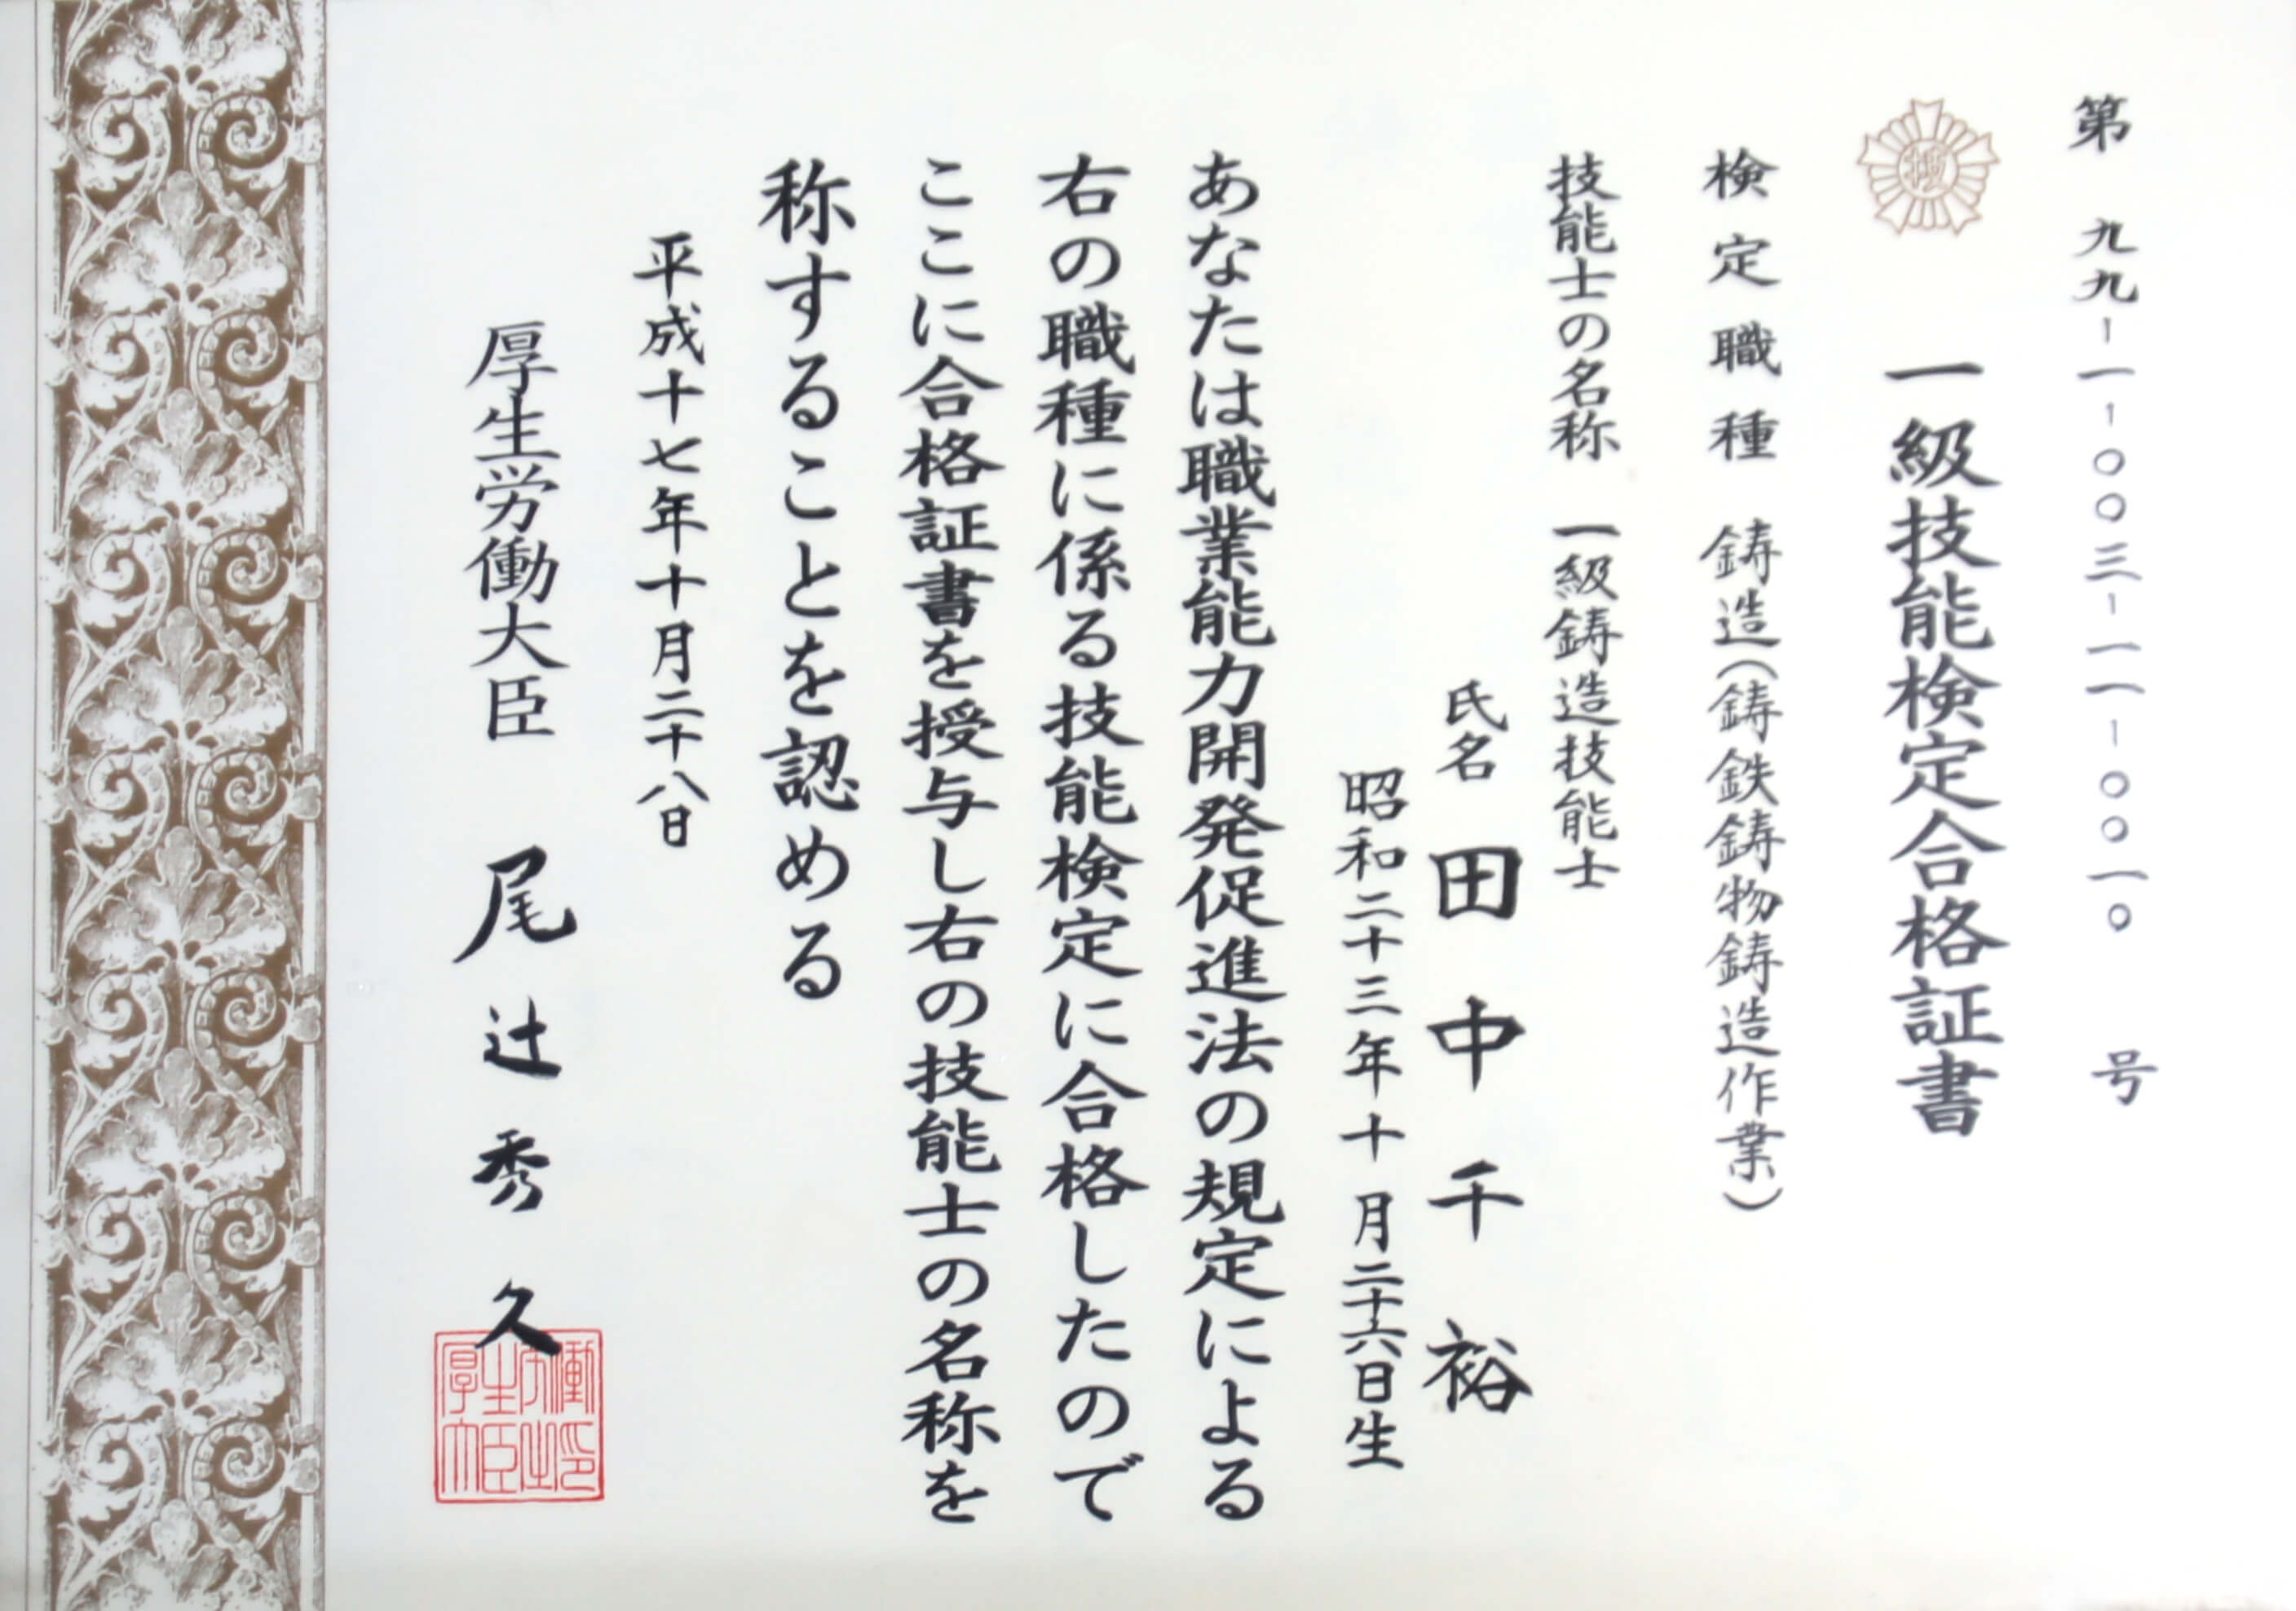 第 九九-一-〇〇三-一一-〇〇一〇 号
技
一級技能検定合格証書
検定職種 鋳造(鋳鉄鋳物鋳造作業)
技能士の名称 一級鋳造技能士
氏名 田中千裕
昭和二十三年十月二十六日生
あなたは職業能力開発促進法の規定による
右の職種に係る技能検定に合格したので
ここに合格証書を授与し右の技能士の名称を
称することを認める
平成十七年十月二十八日
厚生労働大臣 尾辻秀久